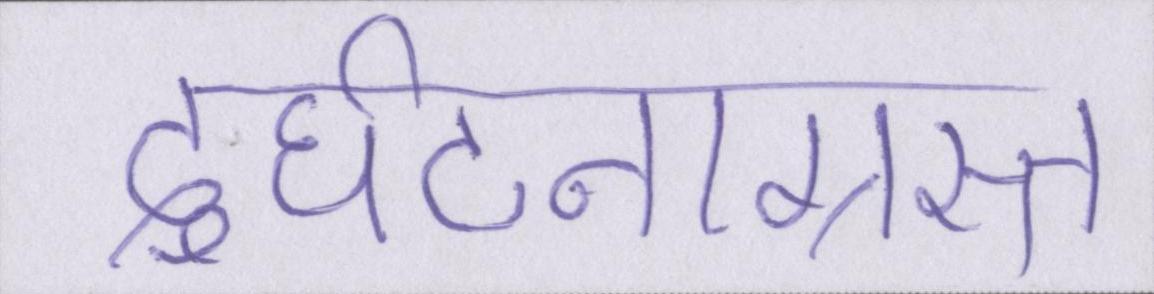 दुर्घटनाग्रस्त